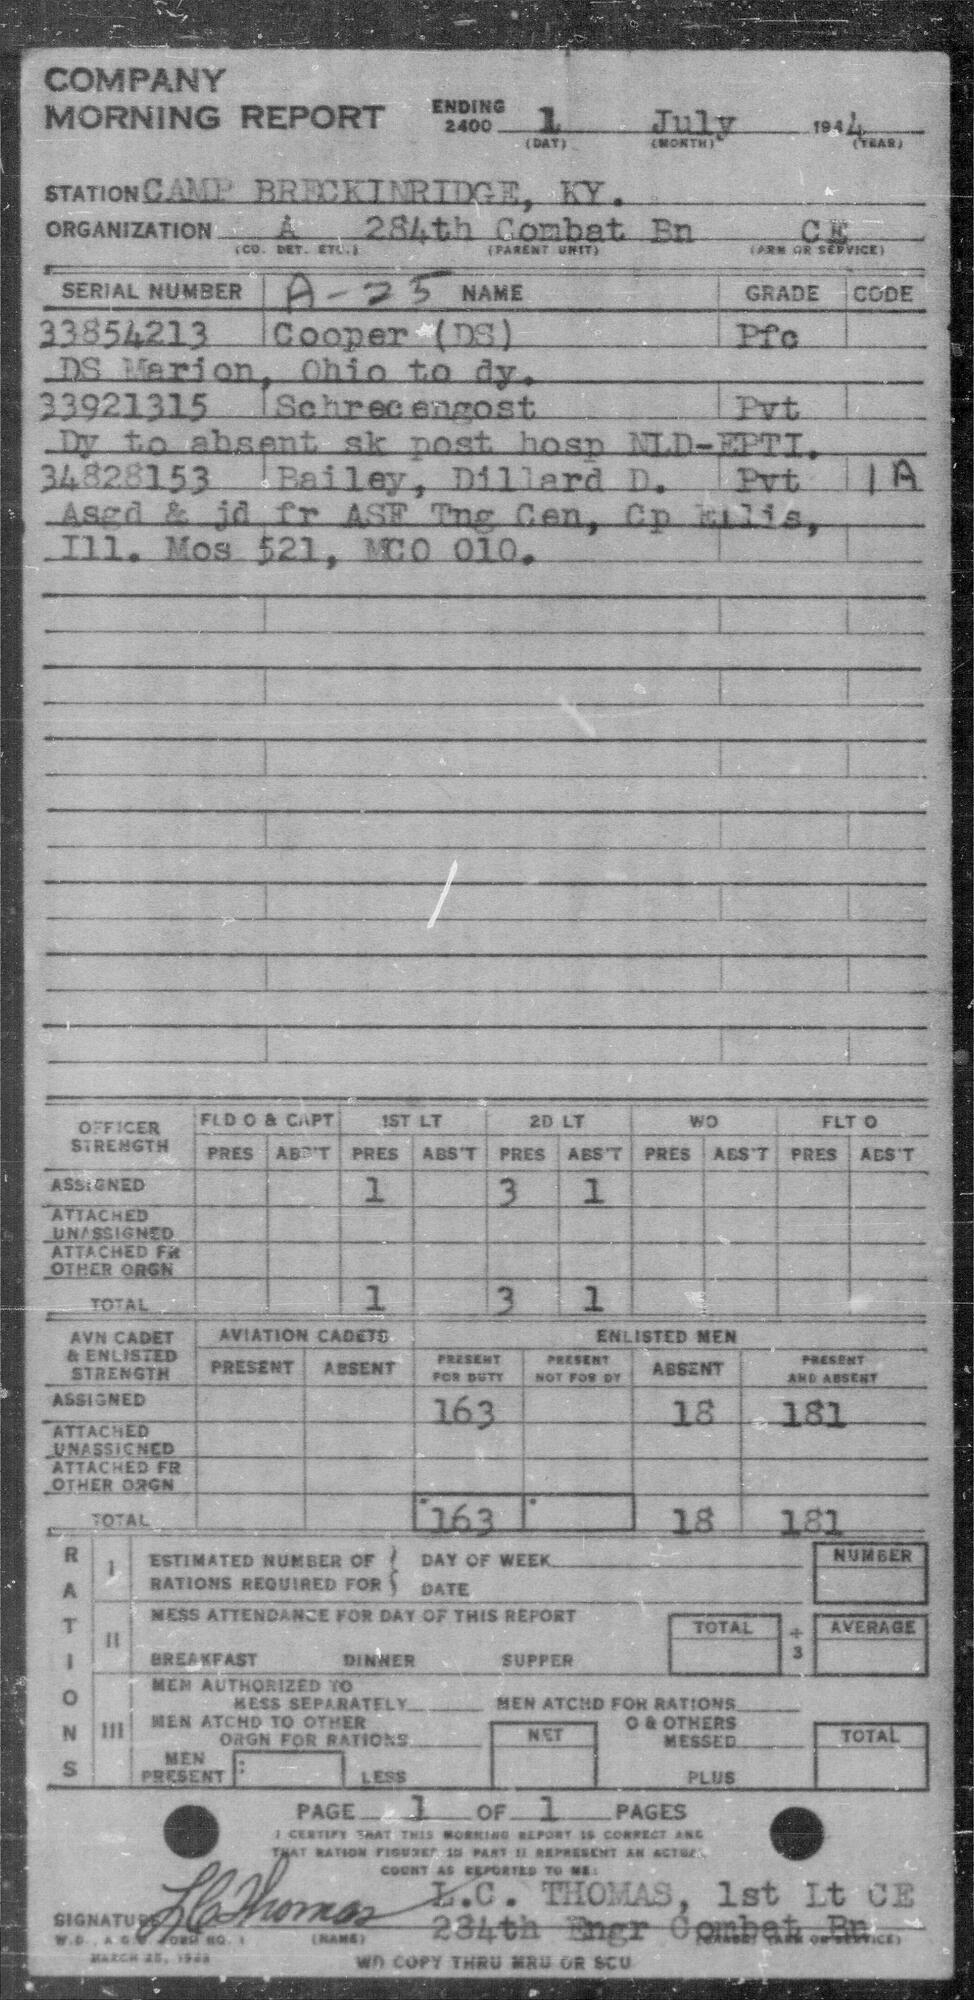 COMPANY
MORNING REPORT ENDING 2400 1 July 1944
(DAY) (MONTH) (YEAR)
STATION CAMP BRECKINRIDGE, KY.
ORGANIZATION A 284th Combat Bn CE
(CO. DET. ETC.) (PARENT UNIT) (ARM OR SERVICE)
SERIAL NUMBER A-25 NAME GRADE CODE
33854213 Cooper (DS) Pfc
DS Marion, Ohio to dy.
33921315 Schrecengost Pvt
Dy to absent sk post hosp NLD-EPTI.
34828153 Bailey, Dillard D. Pvt 1A
Asgd & jd fr ASF Tng Cen, Cp Ellis,
Ill. Mos 521, MCO 010.
OFFICER STRENGTH FLD O & CAPT 1ST LT 2D LT WO FLT O
PRES ABS'T PRES ABS'T PRES ABS'T PRES ABS'T PRES ABS'T
ASSIGNED 1 3 1
ATTACHED UNASSIGNED
ATTACHED FR OTHER ORGN
TOTAL 1 3 1
AVN CADET & ENLISTED STRENGTH AVIATION CADETS ENLISTED MEN
PRESENT ABSENT PRESENT FOR DUTY PRESENT NOT FOR DY ABSENT PRESENT AND ABSENT
ASSIGNED 163 18 181
ATTACHED UNASSIGNED
ATTACHED FR OTHER ORGN
TOTAL 163 18 181
RATIONS
I ESTIMATED NUMBER OF RATIONS REQUIRED FOR DAY OF WEEK DATE NUMBER
II MESS ATTENDANCE FOR DAY OF THIS REPORT TOTAL ÷ 3 AVERAGE
BREAKFAST DINNER SUPPER
III MEN AUTHORIZED TO MESS SEPARATELY MEN ATCHD FOR RATIONS
MEN ATCHD TO OTHER ORGN FOR RATIONS NET O & OTHERS MESSED TOTAL
MEN PRESENT LESS PLUS
PAGE 1 OF 1 PAGES
I CERTIFY THAT THIS MORNING REPORT IS CORRECT AND
THAT RATION FIGURES IN PART II REPRESENT AN ACTUAL
COUNT AS REPORTED TO ME:
L.C. THOMAS, 1st Lt CE
SIGNATURE LC Thomas 284th Engr Combat Bn
W.D., A.G.O. FORM NO. 1 (NAME) (GRADE) (ARM OR SERVICE)
MARCH 25, 1943
WD COPY THRU MRU OR SCU